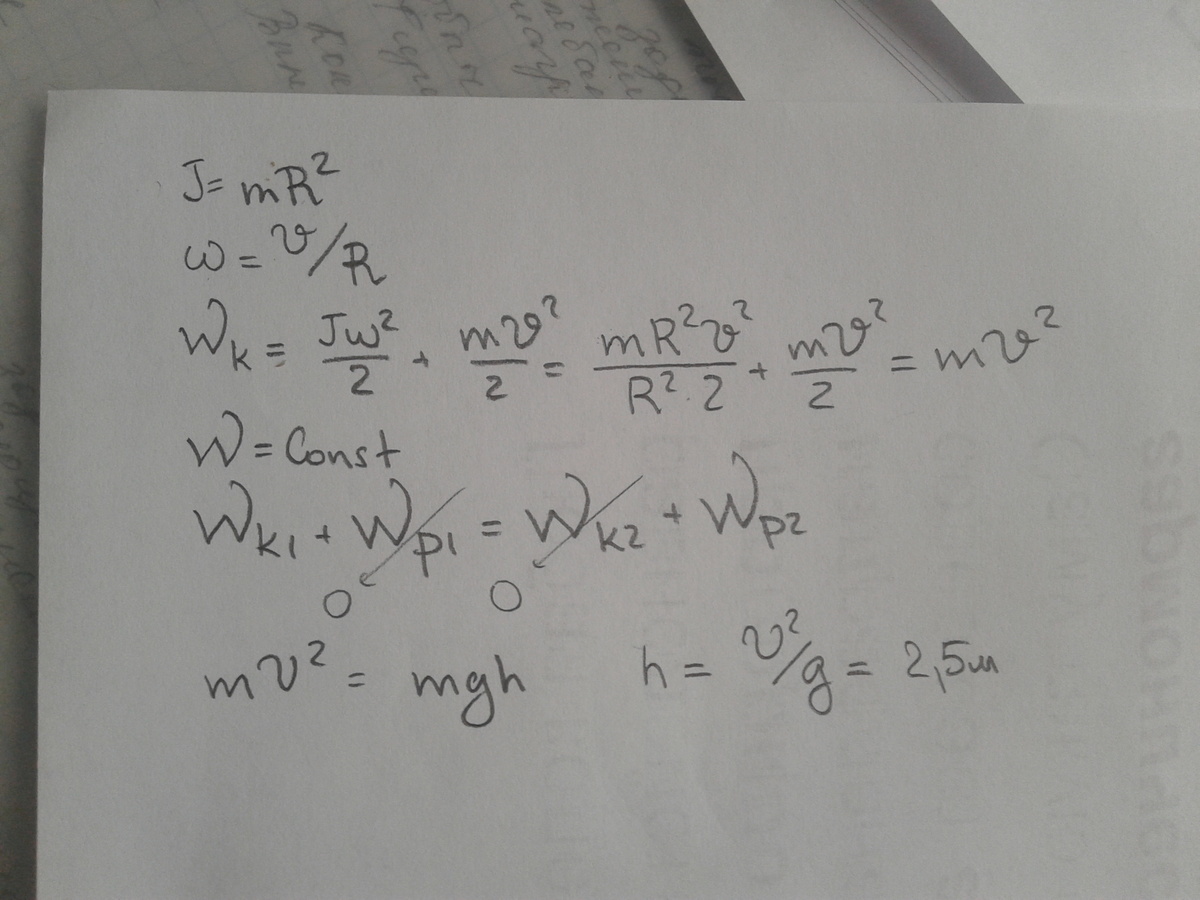 J = mR²
ω = υ/R
Wk = Jω²/2 + mυ²/2 = mR²υ²/R²·2 + mυ²/2 = mυ²
W = Const
Wk1 + Wp1 = Wk2 + Wp2
0 0
mυ² = mgh h = υ²/g = 2,5м